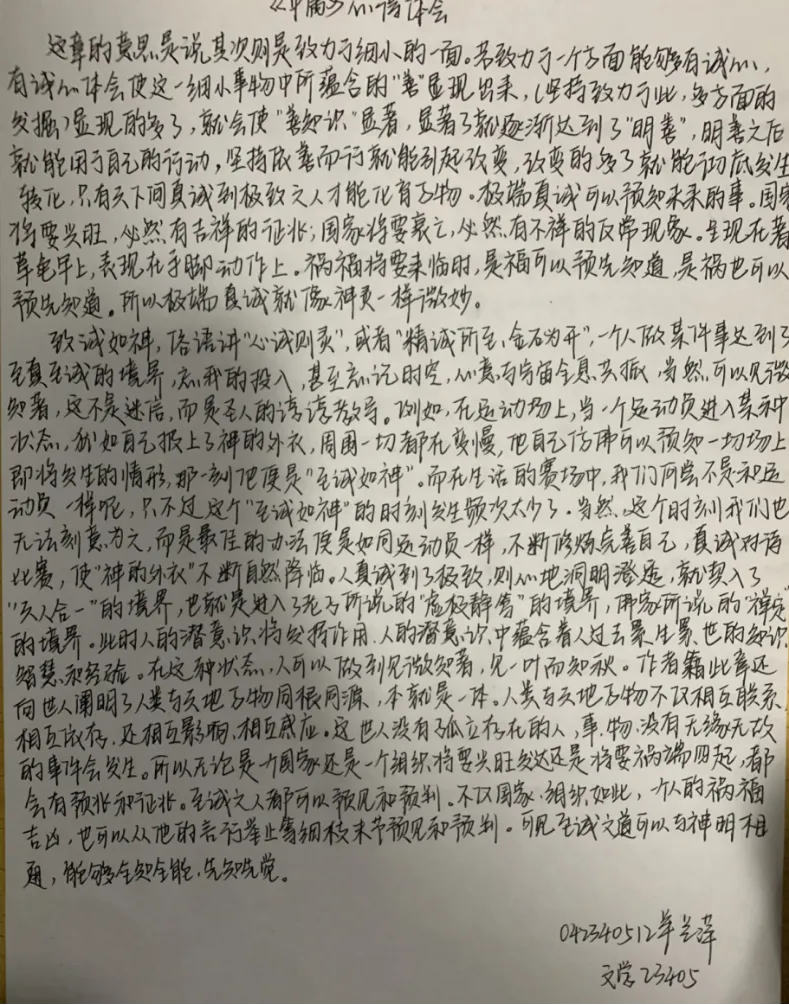 《中庸》心得体会
这章的意思是说其次则是致力于细小的一面。若致力于一个方面能够有诚心,
有诚心体会使这一细小事物中所蕴含的"善"显现出来,(坚持致力于此,多方面的
发掘)显现的多了,就会使"善知识"显著,显著了就逐渐达到了"明善",明善之后
就能用于自己的行动,坚持依善而行就能引起改变,改变的多了就能彻底发生
转化,只有天下间真诚到极致之人才能化育万物。极端真诚可以预知未来的事。国家
将要兴旺,必然有吉祥的征兆;国家将要衰亡,必然有不祥的反常现象。呈现在蓍
草龟甲上,表现在手脚动作上。祸福将要来临时,是福可以预先知道,是祸也可以
预先知道。所以极端真诚就像神灵一样微妙。
致诚如神,俗语讲"心诚则灵",或者"精诚所至,金石为开",一个人做某件事达到了
至真至诚的境界,忘我的投入,甚至忘记时空,心意与宇宙全息共振,当然可以见微
知著,这不是迷信,而是圣人的谆谆教导。例如,在运动场上,当一个运动员进入某种
状态,犹如自己披上了神的外衣,周围一切都在变慢,他自己仿佛可以预知一切场上
即将发生的情形,那一刻他便是"至诚如神"。而在生活的赛场中,我们何尝不是和运
动员一样呢,只不过这个"至诚如神"的时刻发生频次太少了。当然,这个时刻我们也
无法刻意为之,而是最佳的办法便是如同运动员一样,不断修炼完善自己,真诚对待
比赛,使"神的外衣"不断自然降临。人真诚到了极致,则心地洞明澄澈,就契入了
"天人合一"的境界,也就是进入了老子所说的"虚极静笃"的境界,佛家所说的"禅定"
的境界。此时人的潜意识将发挥作用,人的潜意识中蕴含着人过去累生累世的知识
智慧和经验。在这种状态,人可以做到见微知著,见一叶而知秋。作者籍此章还
向世人阐明了人类与天地万物同根同源,本就是一体。人类与天地万物不仅相互联系,
相互依存,还相互影响,相互感应。这世人没有了孤立存在的人,事,物,没有无缘无故
的事件会发生。所以无论是一个国家还是一个组织将要兴旺发达还是将要祸端四起,都
会有预兆和征兆。至诚之人都可以预见和预判。不仅国家、组织如此,一个人的祸福
吉凶,也可以从他的言行举止等细枝末节预见和预判。可见至诚之道可以与神明相
通,能够全知全能,先知先觉。
042340512 兰萍
文学23405